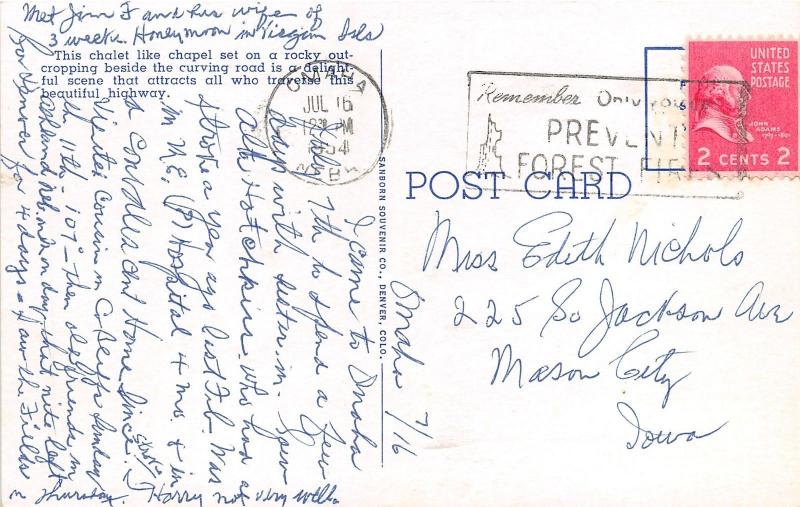 Met Jim F and his wife of
3 weeks. Honeymoon in Virgin Isls
This chalet like chapel set on a rocky out-
cropping beside the curving road is a delight-
ful scene that attracts all who traverse this
beautiful highway.
OMAHA
JUL 16
12 PM
1954
NEBR
Remember Only you can
PREVENT
FOREST FIRES
UNITED
STATES
POSTAGE
JOHN
ADAMS
1797-1801
2 CENTS 2
POST CARD
SANBORN SOUVENIR CO., DENVER, COLO.
Omaha 7/16
I came to Omaha
July 7th to spend a few
days with sister-in-law
Alta Hotchkiss, who had a
stroke a year ago last Feb. Was
in N.E. (?) Hospital 4 mo. & in
a Convalescent Home since.
stroke
Visited Cousin in C. Bluffs Sunday
th 11th - 107° - Then old friends in
Ashland Neb. nex on day, that nite left
for Denver for 4 days - & saw the Fields
on Thursday. Harry not very well.
Miss Edith Nichols
225 So Jackson Ave
Mason City
Iowa